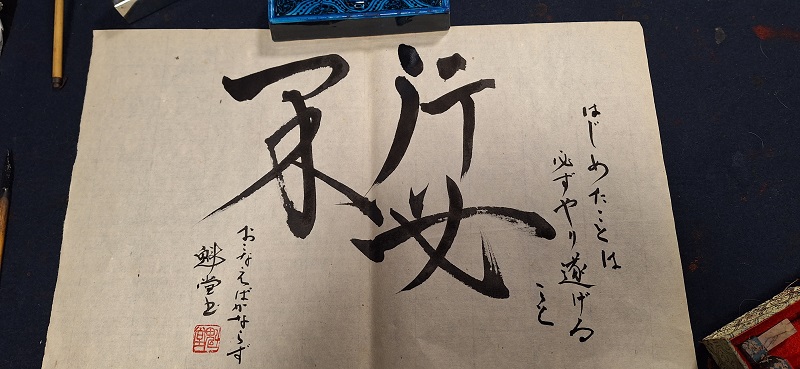 はじめたことは
必ずやり遂げる
こと
行必
果
おこなえばかならず
堂書